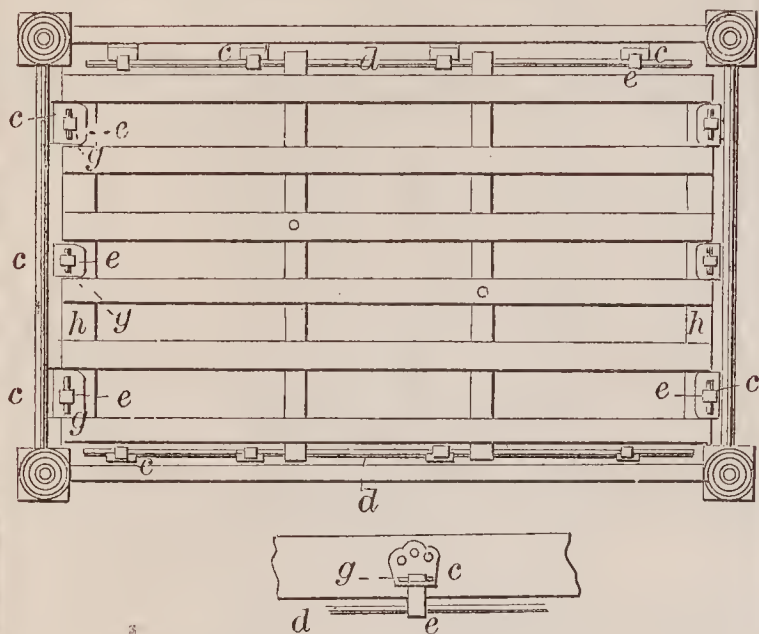 c d c
e
c e
g
c e
g
h h
c e e c
g
c
d
g c
d e
3